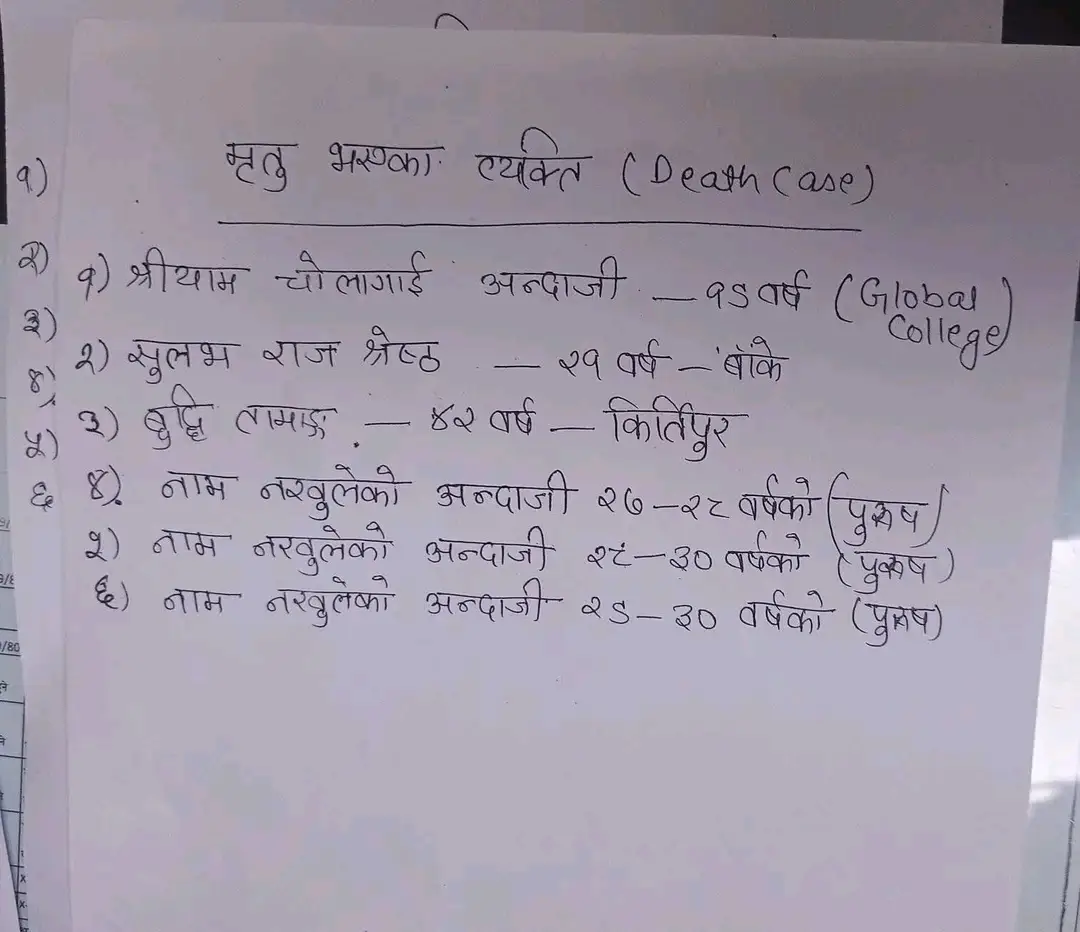 मृतु भएका व्यक्ति (Death Case)
१) श्रीयाम चोलागाई अन्दाजी - १९ वर्ष (Global College)
२) सुलभ राज श्रेष्ठ - २१ वर्ष - बाँके
३) बुद्धि तामाङ - ४२ वर्ष - किर्तिपुर
४) नाम नखुलेको अन्दाजी २७-२८ वर्षको (पुरुष)
५) नाम नखुलेको अन्दाजी २८-३० वर्षको (पुरुष)
६) नाम नखुलेको अन्दाजी २९-३० वर्षको (पुरुष)
१)
२)
३)
४)
५)
६